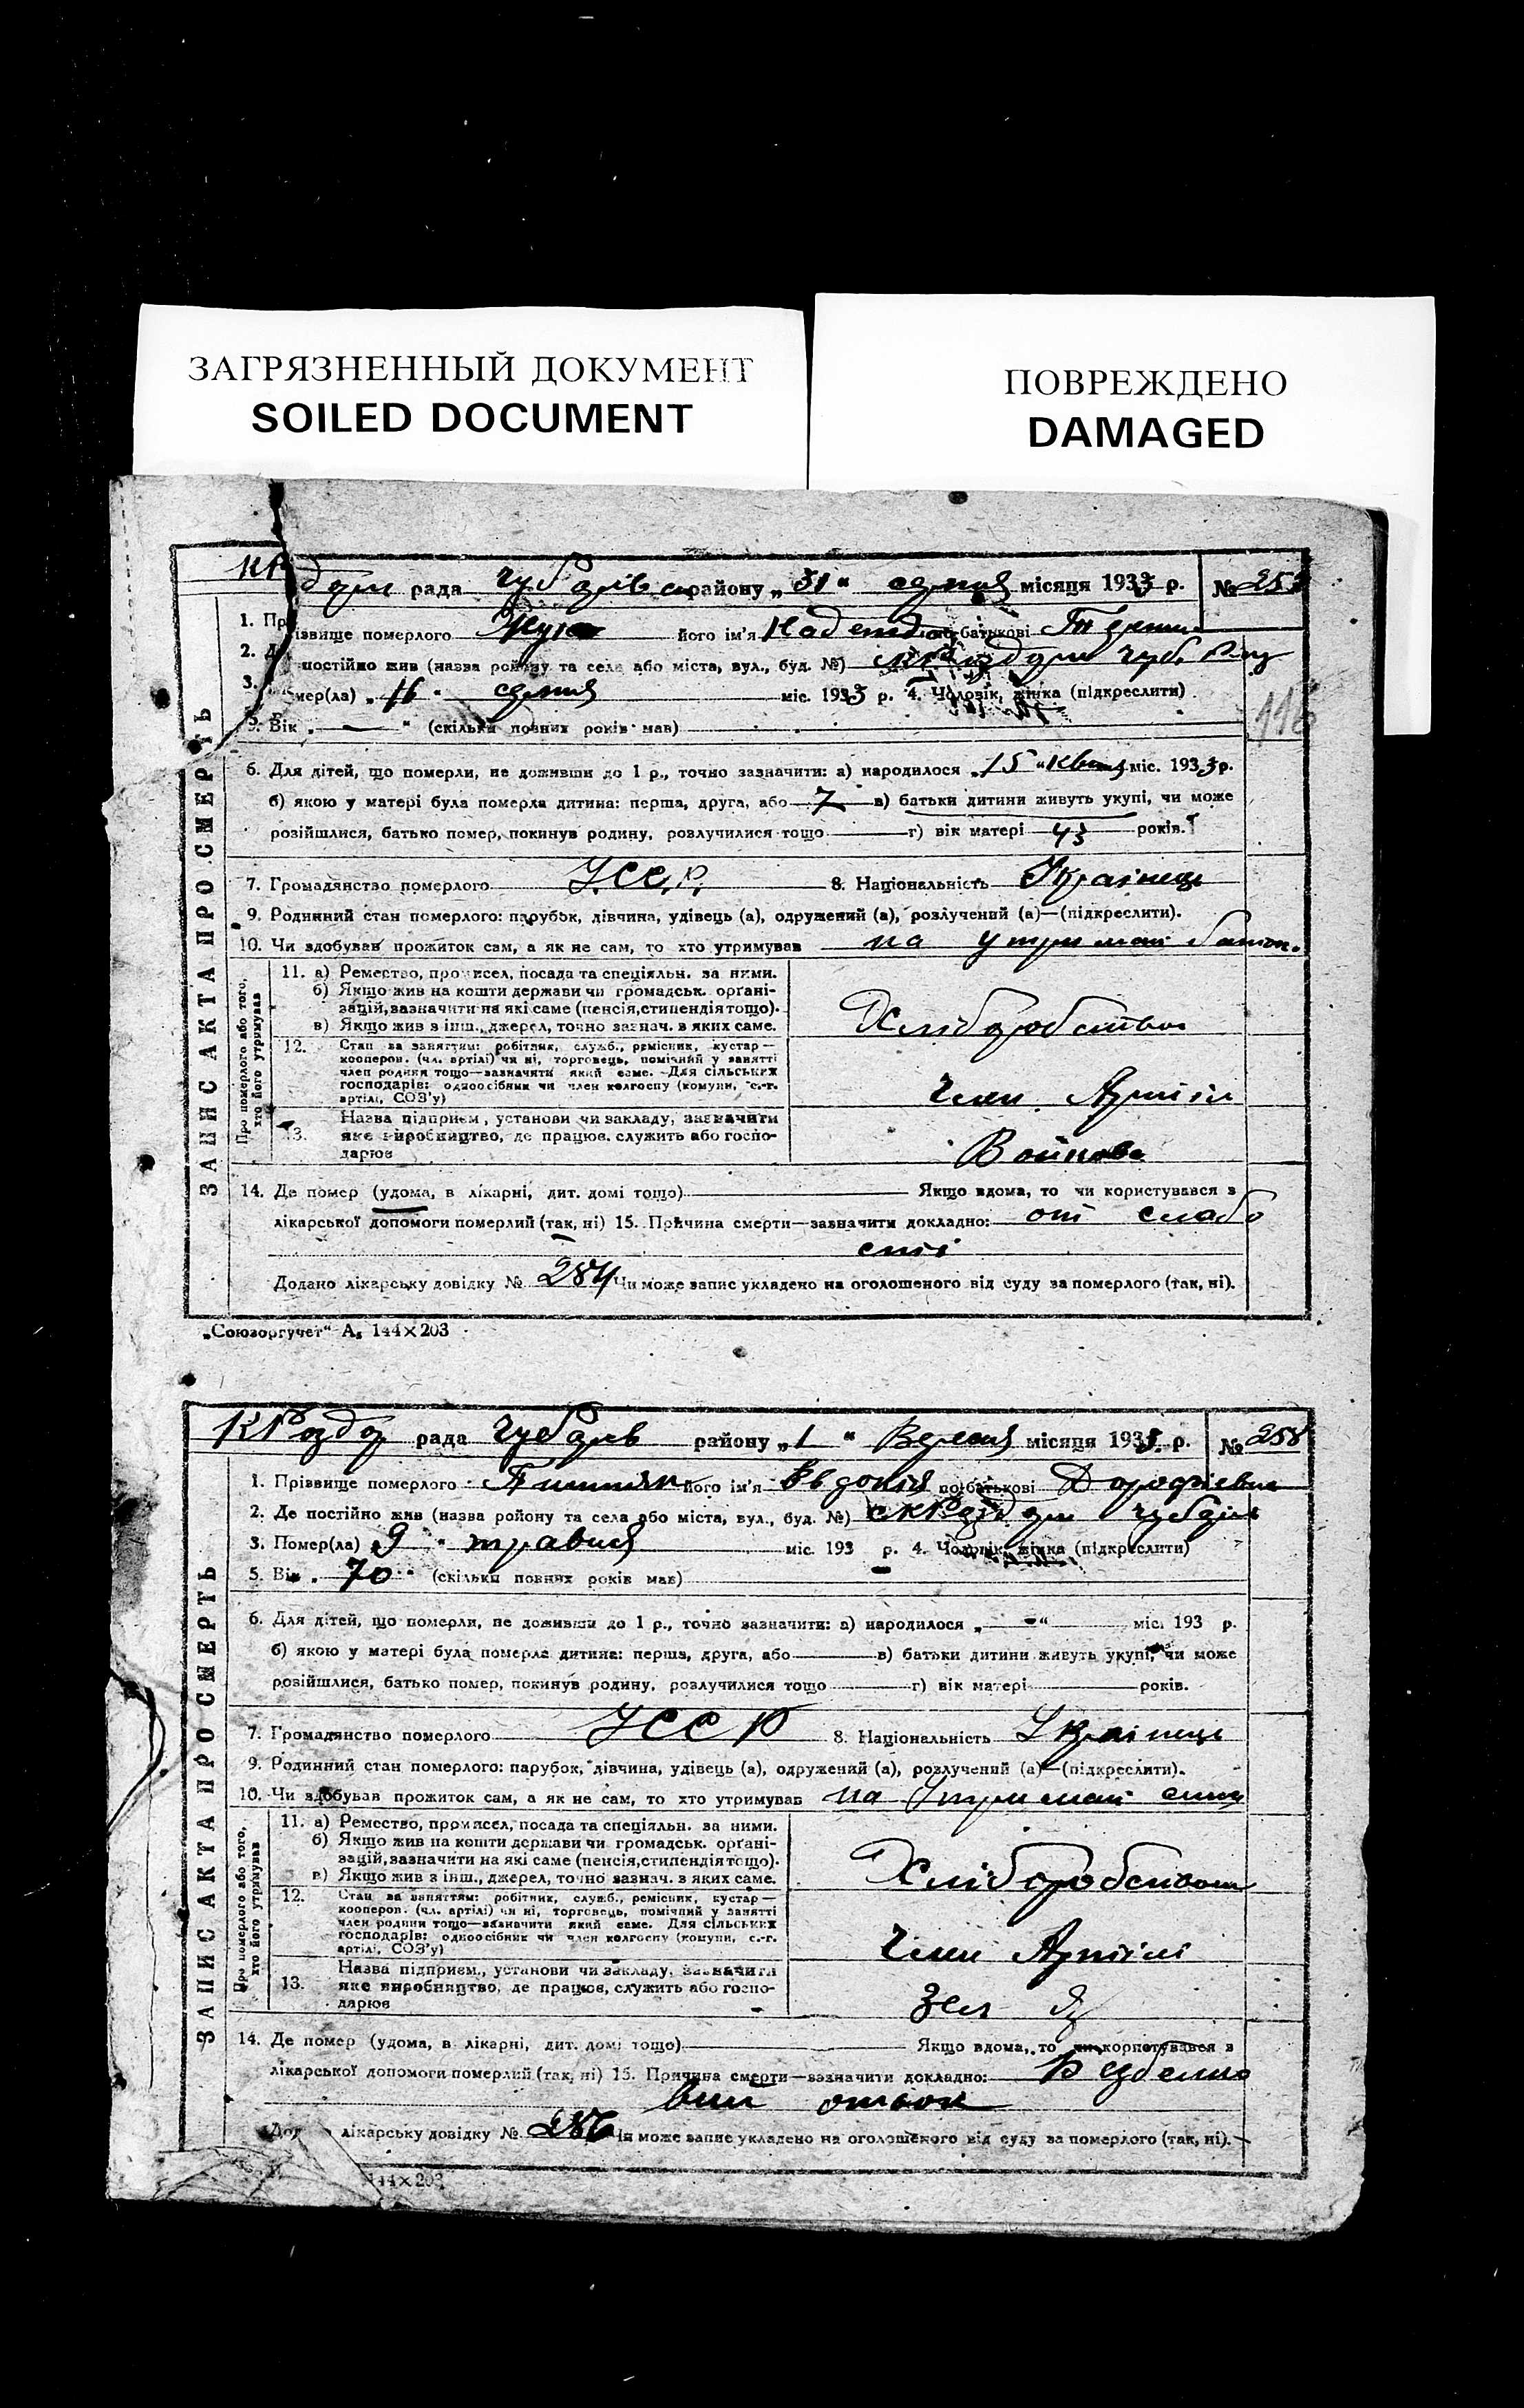 ЗАГРЯЗНЕННЫЙ ДОКУМЕНТ
SOILED DOCUMENT
ПОВРЕЖДЕНО
DAMAGED
ЗАПИС АКТА ПРО СМЕРТЬ
рада району „31" серпня місяця 1933 р. №
1. Прізвище померлого його ім'я Надежда по батькові
2. постійно жив (назва району та села або міста, вул., буд. №)
3. мер(ла) „16" серпня міс. 1933 р. 4. Чоловік, жінка (підкреслити)
5. Вік „—" (скільки повних років мав)
6. Для дітей, що померли, не доживши до 1 р., точно зазначити: а) народилося „15" квітня міс. 1933 р.
б) якою у матері була померла дитина: перша, друга, або 7 в) батьки дитини живуть укупі, чи може
розійшлися, батько помер, покинув родину, розлучилися тощо г) вік матері 43 років.
7. Громадянство померлого УССР 8. Національність Українець
9. Родинний стан померлого: парубок, дівчина, удівець (а), одружений (а), розлучений (а)—(підкреслити).
10. Чи здобував прожиток сам, а як не сам, то хто утримував на утриман
Про померлого або того, хто його утримував
11. а) Ремество, промисел, посада та спеціяльн. за ними.
б) Якщо жив на кошти держави чи громадськ. орґані-
зацій, зазначити на які саме (пенсія, стипендія тощо).
в) Якщо жив з інш., джерел, точно зазнач. з яких саме.
Хліборобством
12. Стан за заняттям: робітник, служб., ремісник, кустар—
кооперов. (чл. артілі) чи ні, торговець, помічний у занятті
член родини тощо—зазначити який саме. Для сільських
господарів: одноосібник чи член колгоспу (комуни, с.-г.
артілі, СОЗ'у)
Член Артілі
13. Назва підприєм., установи чи закладу, зазначити
яке виробництво, де працює, служить або госпо-
дарює
14. Де помер (удома, в лікарні, дит. домі тощо) Якщо вдома, то чи користувався з
лікарської допомоги померлий (так, ні) 15. Причина смерти—зазначити докладно: от слабо
сті
Додано лікарську довідку № 284 Чи може запис укладено на оголошеного від суду за померлого (так, ні).
„Союзоргучет" А5 144×203
ЗАПИС АКТА ПРО СМЕРТЬ
рада району „1" Вересня місяця 193 р. № 258
1. Прізвище померлого його ім'я Евдокія по батькові Дорофіевна
2. Де постійно жив (назва району та села або міста, вул., буд. №)
3. Помер(ла) „9" травня міс. 193 р. 4. Чоловік, жінка (підкреслити)
5. Вік „70" (скільки повних років мав)
6. Для дітей, що померли, не доживши до 1 р., точно зазначити: а) народилося „—" міс. 193 р.
б) якою у матері була померла дитина: перша, друга, або в) батьки дитини живуть укупі, чи може
розійшлися, батько помер, покинув родину, розлучилися тощо г) вік матері років.
7. Громадянство померлого УССР 8. Національність Українець
9. Родинний стан померлого: парубок, дівчина, удівець (а), одружений (а), розлучений (а)—(підкреслити).
10. Чи здобував прожиток сам, а як не сам, то хто утримував на утриман сина
Про померлого або того, хто його утримував
11. а) Ремество, промисел, посада та спеціяльн. за ними.
б) Якщо жив на кошти держави чи громадськ. орґані-
зацій, зазначити на які саме (пенсія, стипендія тощо).
в) Якщо жив з інш., джерел, точно зазнач. з яких саме.
Хліборобством
12. Стан за заняттям: робітник, служб., ремісник, кустар—
кооперов. (чл. артілі) чи ні, торговець, помічний у занятті
член родини тощо—зазначити який саме. Для сільських
господарів: одноосібник чи член колгоспу (комуни, с.-г.
артілі, СОЗ'у)
Член Артілі
13. Назва підприєм., установи чи закладу, зазначити
яке виробництво, де працює, служить або госпо-
дарює
14. Де помер (удома, в лікарні, дит. домі тощо) Якщо вдома, то чи користувався з
лікарської допомоги померлий (так, ні) 15. Причина смерти—зазначити докладно:
лікарську довідку № 286 Чи може запис укладено на оголошеного від суду за померлого (так, ні).
144×203